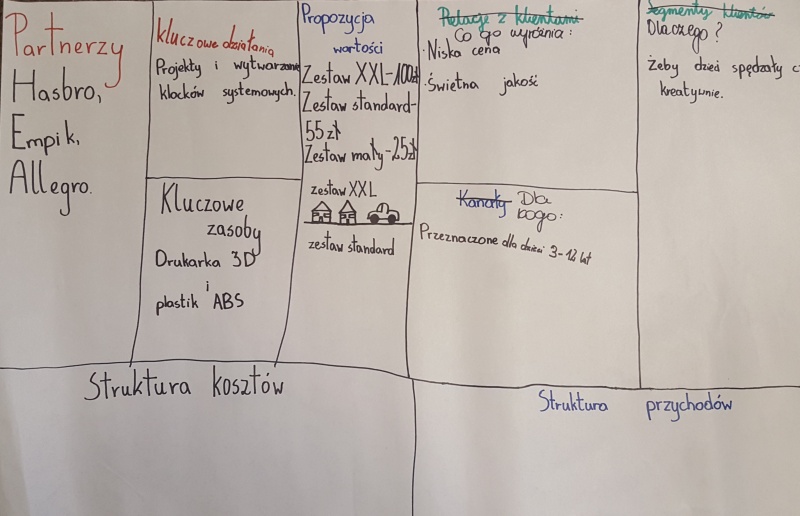 Partnerzy
Hasbro,
Empik,
Allegro.
kluczowe działania
Projekty i wytwarzanie
klocków systemowych.
Kluczowe
zasoby
Drukarka 3D
i
plastik ABS
Propozycja
wartości
Zestaw XXL-100zł
Zestaw standard-
55 zł
Zestaw mały-25zł
zestaw XXL
zestaw standard
Relacje z klientami
Co go wyróżnia:
·Niska cena
·Świetna jakość
Kanały Dla
kogo:
Przeznaczone dla dzieci 3-12 lat
Segmenty klientów
Dlaczego?
Żeby dzieci spędzały c
kreatywnie.
Struktura kosztów
Struktura przychodów